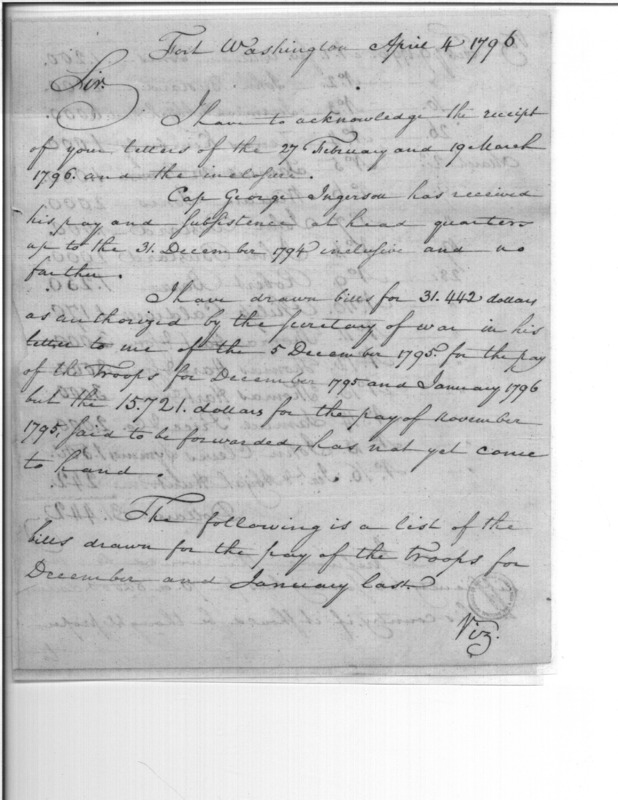 Fort Washington April 4 1796
Sir.
I have to acknowledge the receipt
of your letters of the 27 February and 19 March
1796. and the inclosure.
Cap George Ingerson has received
his pay and subsistence at head quarters
up to the 31. December 1794 inclusive and no
farther.
I have drawn bills for 31.442 dollars
as authorized by the secretary of war in his
letter to me of the 5 December 1795. for the pay
of the Troops for December 1795 and January 1796
but the 15.721. dollars for the pay of November
1795, said to be forwarded, has not yet come
to hand.
The following is a list of the
bills drawn for the pay of the troops for
December and January last.
Viz.